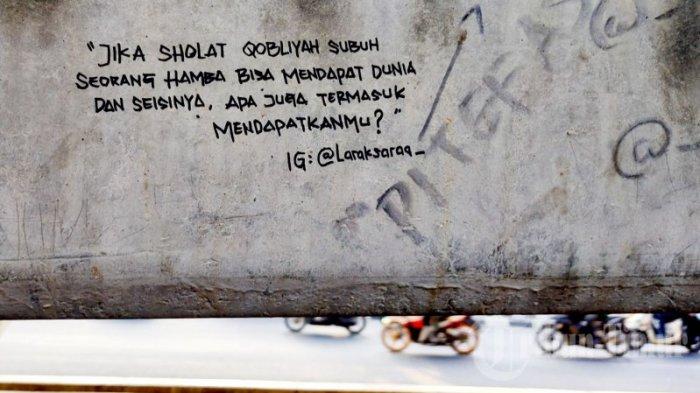 "JIKA SHOLAT QOBLIYAH SUBUH
SEORANG HAMBA BISA MENDAPAT DUNIA
DAN SEISINYA, APA JUGA TERMASUK
MENDAPATKANMU?"
IG: @Laraksaraa_